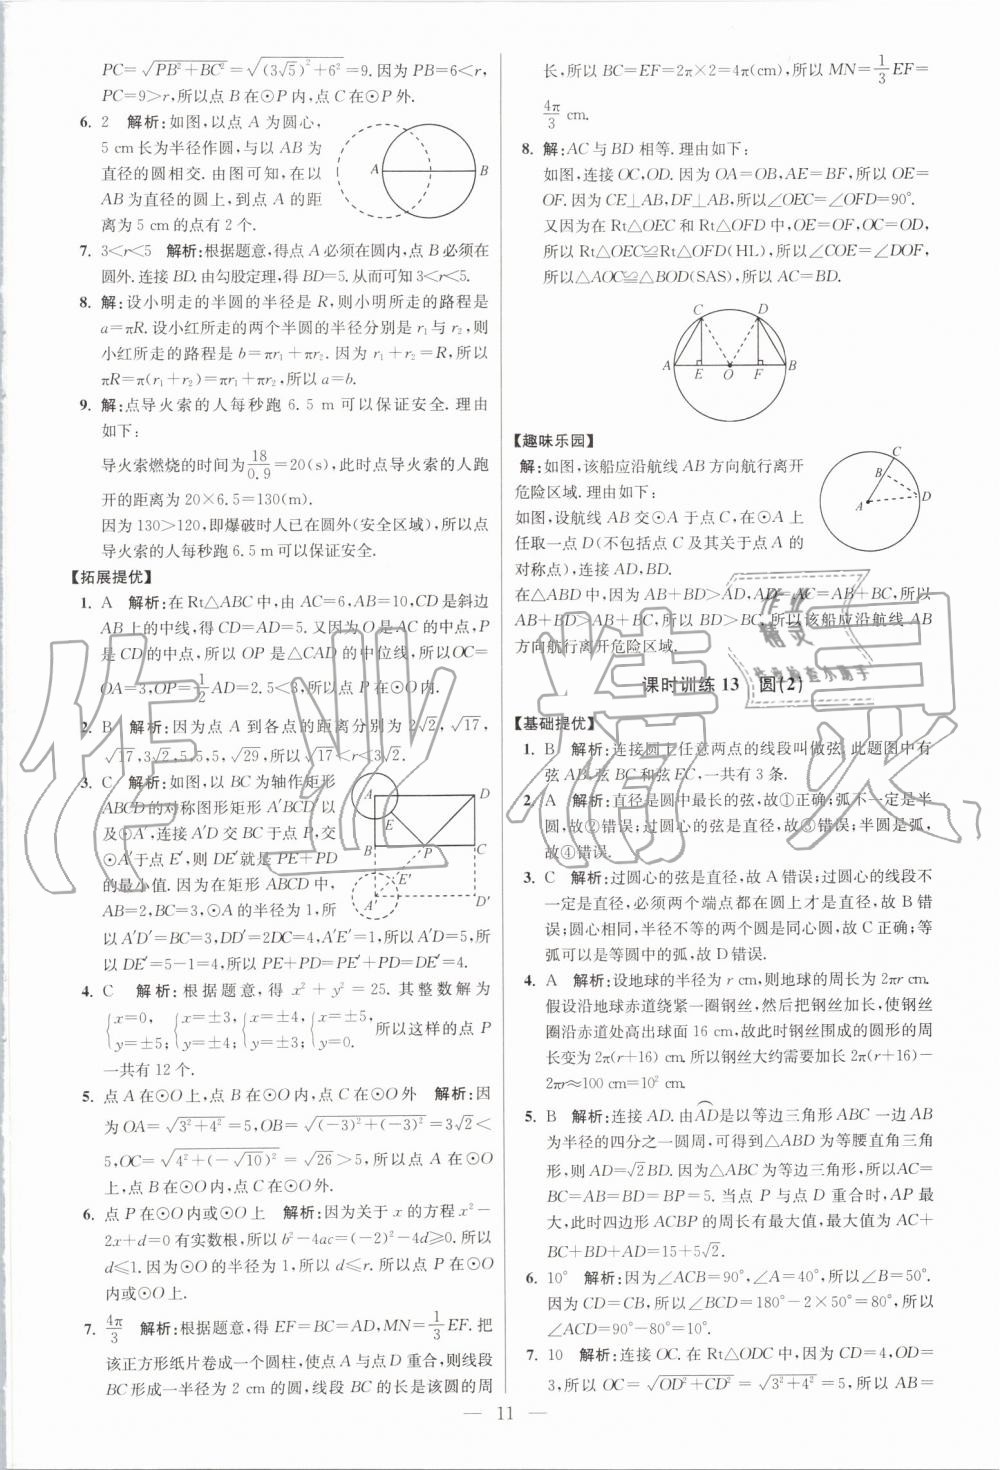 PC=√(PB²+BC²)=√((3√5)²+6²)=9. 因为 PB=6<r,
PC=9>r,所以点 B 在⊙P 内,点 C 在⊙P 外.
6. 2 解析:如图,以点 A 为圆心,
5 cm 长为半径作圆,与以 AB 为
直径的圆相交. 由图可知,在以
AB 为直径的圆上,到点 A 的距
离为 5 cm 的点有 2 个.
A B
7. 3<r<5 解析:根据题意,得点 A 必须在圆内,点 B 必须在
圆外. 连接 BD. 由勾股定理,得 BD=5. 从而可知 3<r<5.
8. 解:设小明走的半圆的半径是 R,则小明所走的路程是
a=πR. 设小红所走的两个半圆的半径分别是 r₁ 与 r₂,则
小红所走的路程是 b=πr₁+πr₂. 因为 r₁+r₂=R,所以
πR=π(r₁+r₂)=πr₁+πr₂,所以 a=b.
9. 解:点导火索的人每秒跑 6.5 m 可以保证安全. 理由
如下:
导火索燃烧的时间为 18/0.9=20(s),此时点导火索的人跑
开的距离为 20×6.5=130(m).
因为 130>120,即爆破时人已在圆外(安全区域),所以点
导火索的人每秒跑 6.5 m 可以保证安全.
【拓展提优】
1. A 解析:在 Rt△ABC 中,由 AC=6,AB=10,CD 是斜边
AB 上的中线,得 CD=AD=5. 又因为 O 是 AC 的中点,P
是 CD 的中点,所以 OP 是△CAD 的中位线,所以 OC=
OA=3,OP=1/2 AD=2.5<3,所以点 P 在⊙O 内.
2. B 解析:因为点 A 到各点的距离分别为 2√2,√17,
√17,3√2,5,5,5,√29,所以 √17<r<3√2.
3. C 解析:如图,以 BC 为轴作矩形
ABCD 的对称图形矩形 A′BCD′ 以
及⊙A′,连接 A′D 交 BC 于点 P,交
⊙A′于点 E′,则 DE′就是 PE+PD
的最小值. 因为在矩形 ABCD 中,
AB=2,BC=3,⊙A 的半径为 1,所
以 A′D′=BC=3,DD′=2DC=4,A′E′=1,所以 A′D=5,所
以 DE′=5-1=4,所以 PE+PD=PE′+PD=DE′=4.
A D
E
B P C
E′
A′ D′
4. C 解析:根据题意,得 x²+y²=25. 其整数解为
{x=0, y=±5; {x=±3, y=±4; {x=±4, y=±3; {x=±5, y=0. 所以这样的点 P
一共有 12 个.
5. 点 A 在⊙O 上,点 B 在⊙O 内,点 C 在⊙O 外 解析:因
为 OA=√(3²+4²)=5,OB=√((-3)²+(-3)²)=3√2<
5,OC=√(4²+(-√10)²)=√26>5,所以点 A 在⊙O
上,点 B 在⊙O 内,点 C 在⊙O 外.
6. 点 P 在⊙O 内或⊙O 上 解析:因为关于 x 的方程 x²-
2x+d=0 有实数根,所以 b²-4ac=(-2)²-4d≥0. 所以
d≤1. 因为⊙O 的半径为 1,所以 d≤r. 所以点 P 在⊙O
内或⊙O 上.
7. 4π/3 解析:根据题意,得 EF=BC=AD,MN=1/3 EF. 把
该正方形纸片卷成一个圆柱,使点 A 与点 D 重合,则线段
BC 形成一半径为 2 cm 的圆,线段 BC 的长是该圆的周
长,所以 BC=EF=2π×2=4π(cm),所以 MN=1/3 EF=
4π/3 cm.
8. 解:AC 与 BD 相等. 理由如下:
如图,连接 OC,OD. 因为 OA=OB,AE=BF,所以 OE=
OF. 因为 CE⊥AB,DF⊥AB,所以∠OEC=∠OFD=90°.
又因为在 Rt△OEC 和 Rt△OFD 中,OE=OF,OC=OD,
所以 Rt△OEC≌Rt△OFD(HL),所以∠COE=∠DOF,
所以△AOC≌△BOD(SAS),所以 AC=BD.
C D
A E O F B
【趣味乐园】
解:如图,该船应沿航线 AB 方向航行离开
危险区域. 理由如下:
如图,设航线 AB 交⊙A 于点 C,在⊙A 上
任取一点 D(不包括点 C 及其关于点 A 的
对称点),连接 AD,BD.
在△ABD 中,因为 AB+BD>AD,AD=AC=AB+BC,所以
AB+BD>AB+BC,所以 BD>BC,所以该船应沿航线 AB
方向航行离开危险区域.
C
B
A D
课时训练 13 圆(2)
【基础提优】
1. B 解析:连接圆上任意两点的线段叫做弦. 此题图中有
弦 AB,弦 BC 和弦 EC,一共有 3 条.
2. A 解析:直径是圆中最长的弦,故①正确;弧不一定是半
圆,故②错误;过圆心的弦是直径,故③错误;半圆是弧,
故④错误.
3. C 解析:过圆心的弦是直径,故 A 错误;过圆心的线段不
一定是直径,必须两个端点都在圆上才是直径,故 B 错
误;圆心相同,半径不等的两个圆是同心圆,故 C 正确;等
弧可以是等圆中的弧,故 D 错误.
4. A 解析:设地球的半径为 r cm,则地球的周长为 2πr cm.
假设沿地球赤道绕紧一圈钢丝,然后把钢丝加长,使钢丝
圈沿赤道处高出球面 16 cm,故此时钢丝围成的圆形的周
长变为 2π(r+16) cm. 所以钢丝大约需要加长 2π(r+16)-
2πr≈100 cm=10² cm.
5. B 解析:连接 AD. 由⌒AD是以等边三角形 ABC 一边 AB
为半径的四分之一圆周,可得到△ABD 为等腰直角三角
形,则 AD=√2BD. 因为△ABC 为等边三角形,所以 AC=
BC=AB=BD=BP=5. 当点 P 与点 D 重合时,AP 最
大,此时四边形 ACBP 的周长有最大值,最大值为 AC+
BC+BD+AD=15+5√2.
6. 10° 解析:因为∠ACB=90°,∠A=40°,所以∠B=50°.
因为 CD=CB,所以∠BCD=180°-2×50°=80°,所以
∠ACD=90°-80°=10°.
7. 10 解析:连接 OC. 在 Rt△ODC 中,因为 CD=4,OD=
3,所以 OC=√(OD²+CD²)=√(3²+4²)=5,所以 AB=
— 11 —
作业精灵
作业
精灵
作业检查小助手